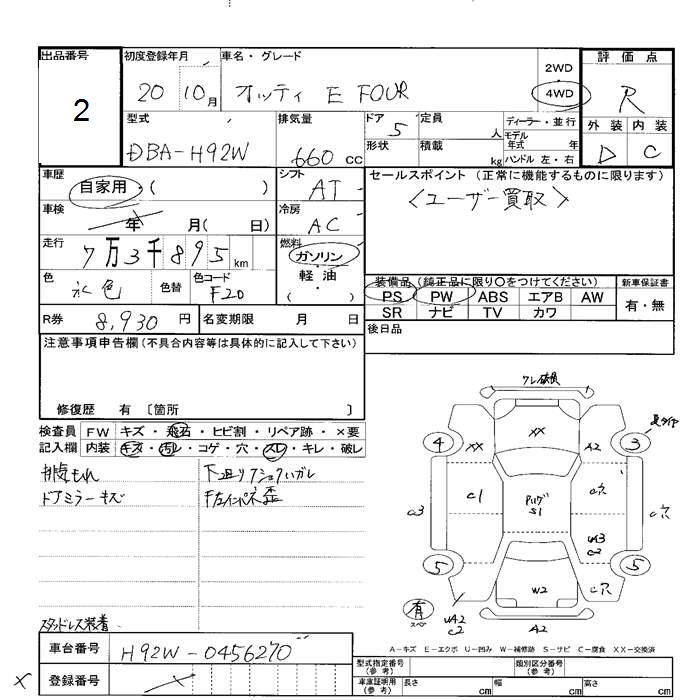 出品番号 初度登録年月 車名・グレード 評価点
2
20 10月 オッティ E FOUR 2WD 4WD R
型式 排気量 ドア 5 定員 人 ディーラー・並行 外装 内装
DBA-H92W 660 cc 形状 積載 kg モデル年式 年 ハンドル 左・右 D C
車歴 自家用・( ) シフト AT セールスポイント (正常に機能するものに限ります)
車検 年 月( 日) 冷房 AC <ユーザー買取>
走行 7万3千895 km 燃料 ガソリン・軽油・( )
色 水色 色替 色コード F20
装備品 (純正品に限り○をつけてください) 新車保証書
PS PW ABS エアB AW 有・無
SR ナビ TV カワ
R券 8,930 円 名変期限 月 日 後日品
注意事項申告欄(不具合内容等は具体的に記入して下さい)
修復歴 有 〔箇所 〕
検査員 FW キズ・飛石・ヒビ割・リペア跡・×要
記入欄 内装 キズ・汚レ・コゲ・穴・スレ・キレ・破レ
排気もれ
ドアミラーキズ
4 XX XX A2 3
C3 C1 S1 C穴 C穴
UA3
C2
5 W2 C穴 5
有 UA2
C2 A2
スタッドレス装着
A-キズ E-エクボ U-凹み W-補修跡 S-サビ C-腐食 XX-交換済
車台番号 H92W-0456270 型式指定番号(参考) 類別区分番号(参考)
× 登録番号 車庫証明用(参考) 長さ cm 幅 cm 高さ cm